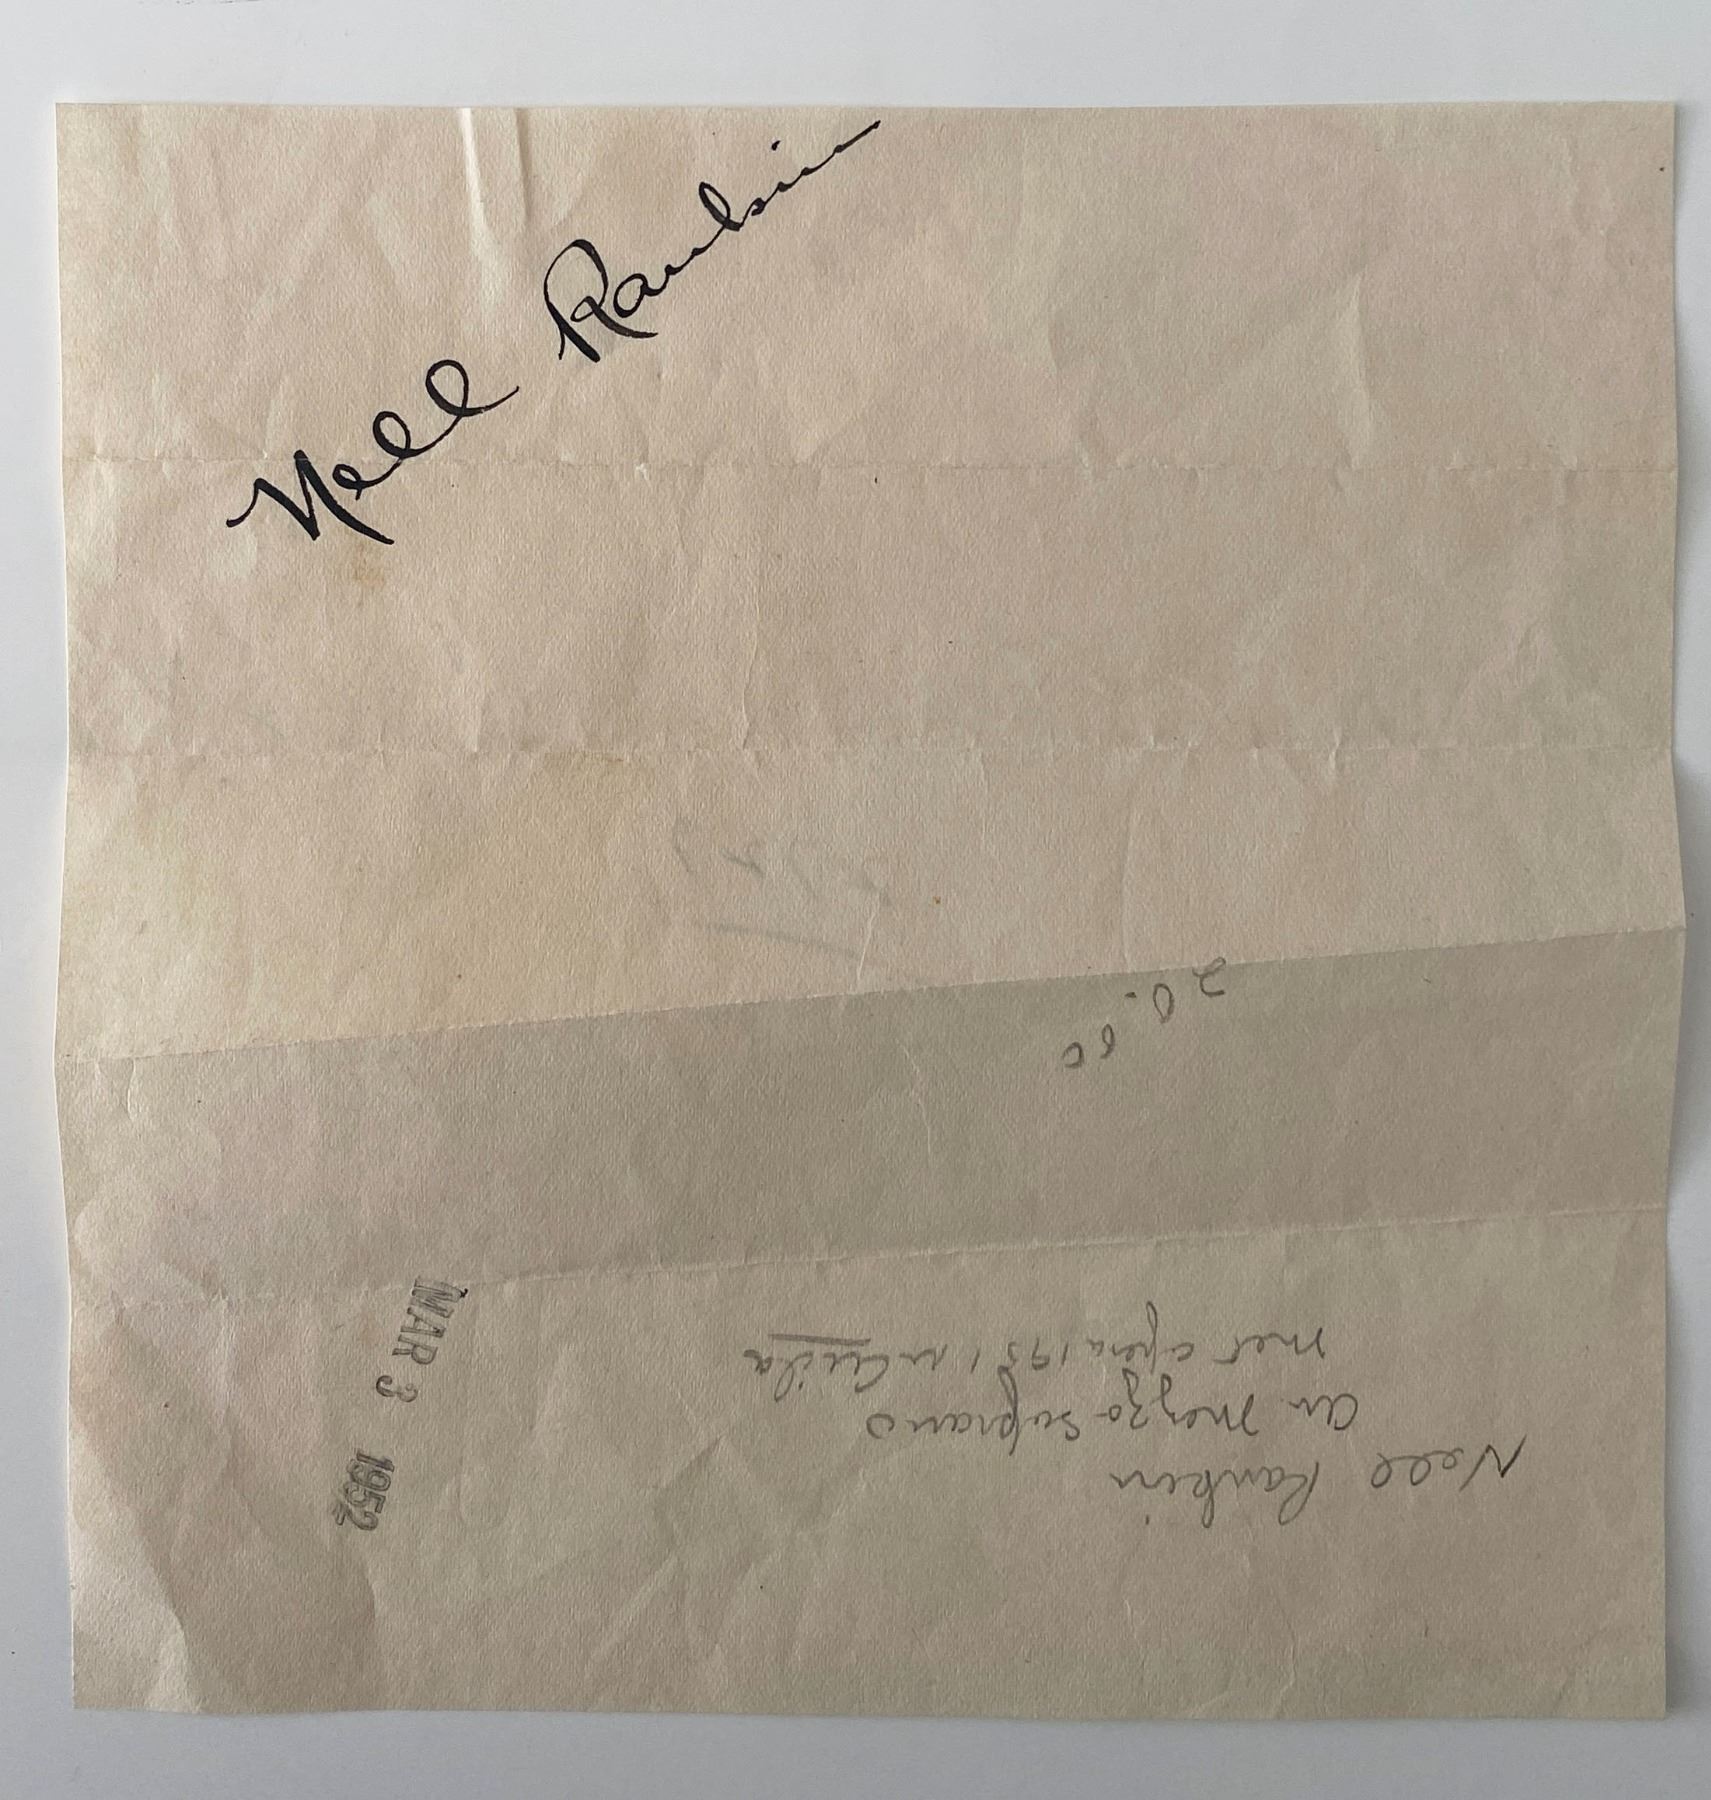 Nell Rankin
20.00
MAR 3 1952
Nell Rankin
Am mezzo soprano
met opera 1951, in Aida